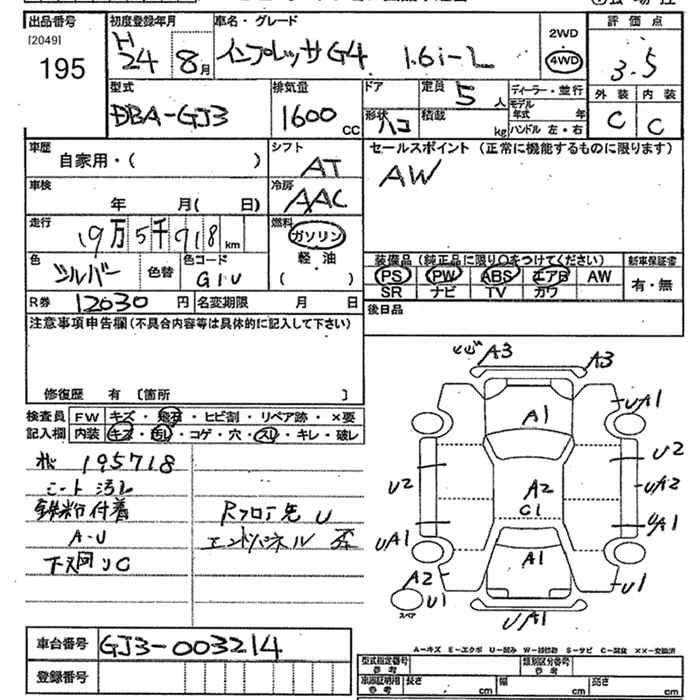 出品番号 初度登録年月 車名・グレード 評価点
[2049] 195 H 24 8月 インプレッサG4 1.6i-L 2WD 4WD 3.5
型式 排気量 ドア 定員 5人 ディーラー・並行 外装 内装
DBA-GJ3 1600cc 形状 ハコ 積載 kg モデル年式 年 ハンドル 左・右 C C
車歴 シフト セールスポイント (正常に機能するものに限ります)
自家用・( ) AT AW
車検 冷房
年 月( 日) AAC
走行 燃料
19万5千718km ガソリン
色 シルバー 色替 色コード G1U 軽油 ( )
装備品 (純正品に限り○をつけてください) 新車保証書
PS PW ABS エアB AW 有・無
SR ナビ TV カワ
R券 12030円 名変期限 月 日 後日品
注意事項申告欄(不具合内容等は具体的に記入して下さい)
修復歴 有 〔箇所 〕
検査員 FW キズ・飛石・ヒビ割・リペア跡・×要
記入欄 内装 キズ・汚れ・コゲ・穴・スレ・キレ・破レ
195718
シート汚レ
鉄粉付着 Rフロア先 U
A-U エンドパネル 歪
下廻りC
A3 A3
A1 UA1
U2 U2
A2 UA2
C1
UA1 UA1
A1
A2 U1 U1
スペア
UA1
車台番号 GJ3-003214
登録番号
A-キズ E-エクボ U-凹み W-補修跡 S-サビ C-腐食 ××-交換済
型式指定番号 参考 類別区分番号 参考
車庫証明用 参考 長さ cm 幅 cm 高さ cm